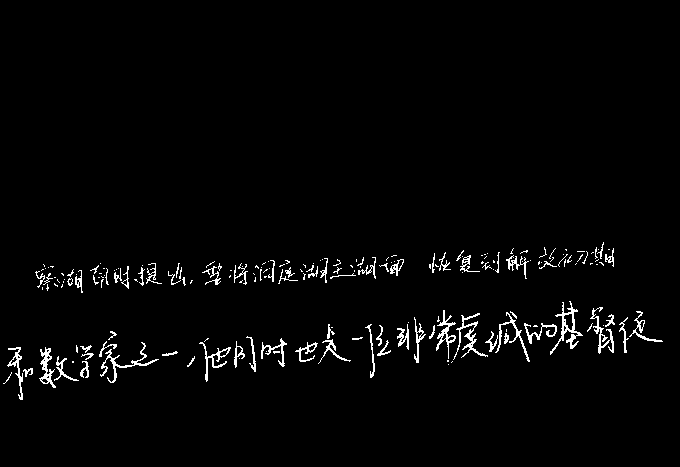 察湖南时提出,要将洞庭湖主湖面恢复到解放初期
和数学家之一,他同时也是一位非常虔诚的基督徒